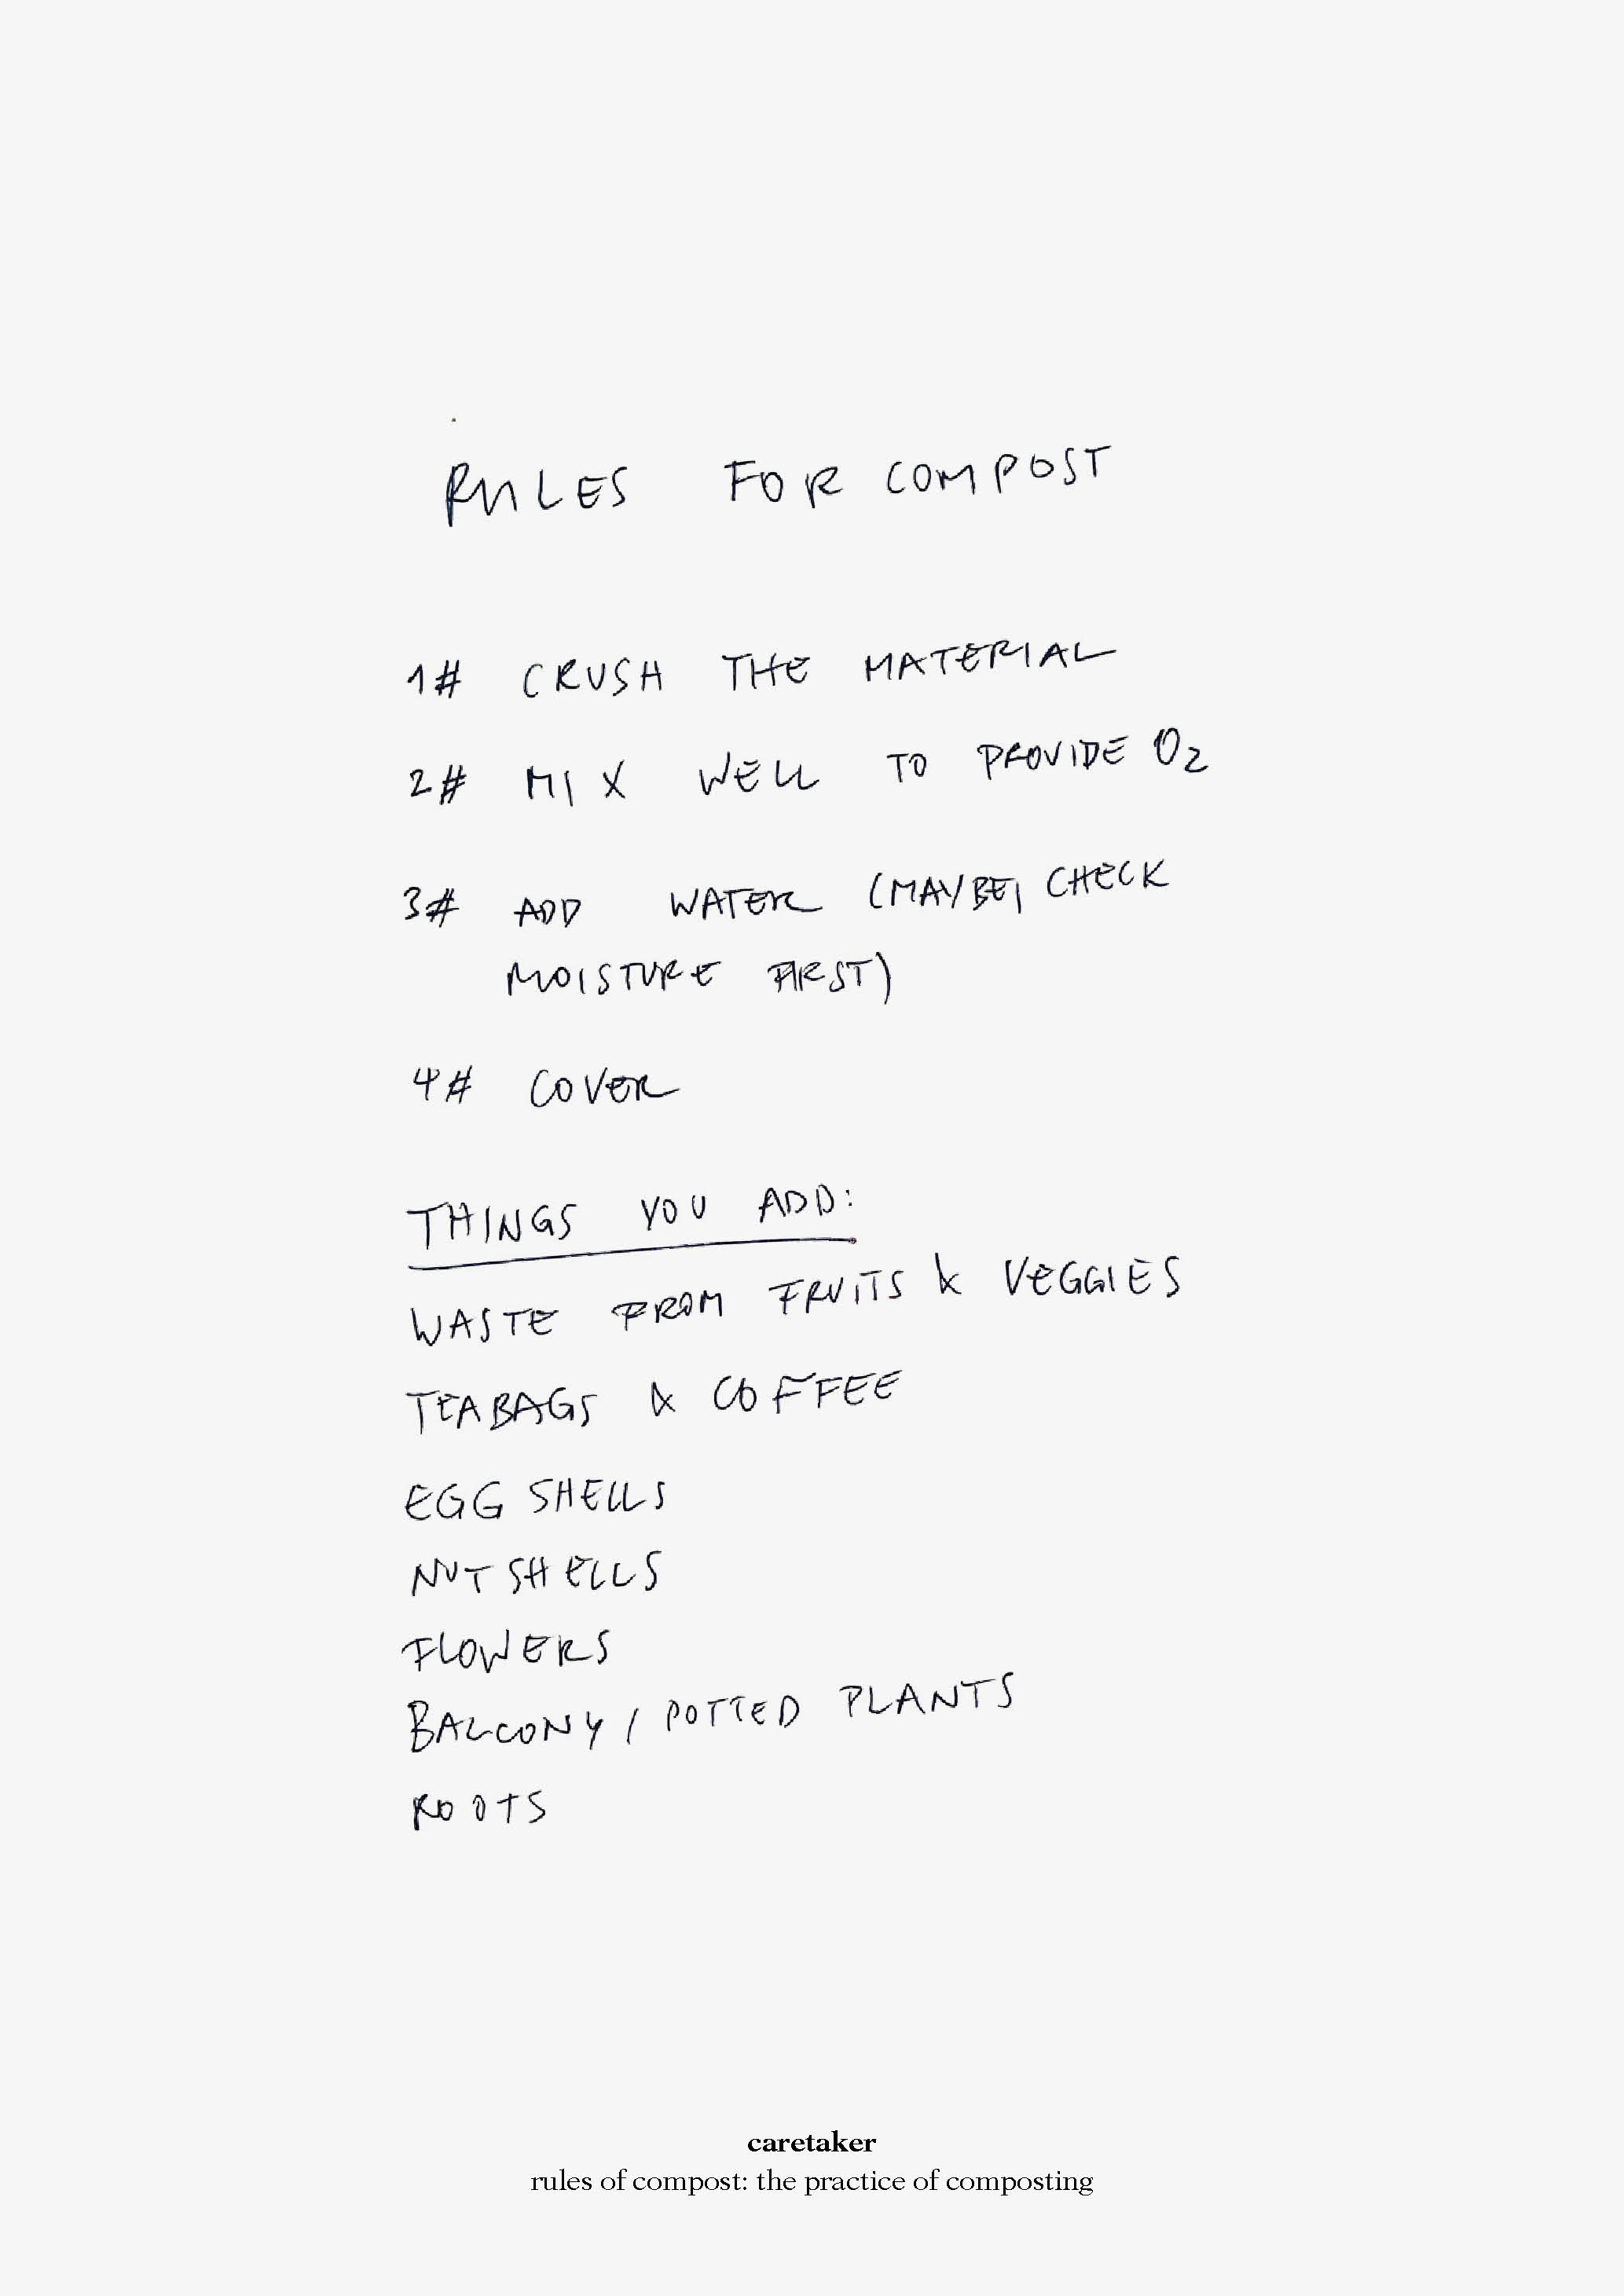 RULES FOR COMPOST
1# CRUSH THE MATERIAL
2# MIX WELL TO PROVIDE O2
3# ADD WATER (MAYBE, CHECK
MOISTURE FIRST)
4# COVER
THINGS YOU ADD:
WASTE FROM FRUITS & VEGGIES
TEABAGS & COFFEE
EGG SHELLS
NUTSHELLS
FLOWERS
BALCONY / POTTED PLANTS
ROOTS
caretaker
rules of compost: the practice of composting